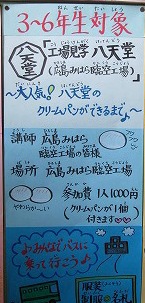 3~6年生対象
八天堂
「工場見学 八天堂
(広島みはら臨空工場)」
~大人気!! 八天堂の
クリームパンができるまで♪~
講師 広島みはら
臨空工場の皆様
場所 広島みはら
臨空工場
参加費 1人1000円
(クリームパンが1個
付きます)
やわらか~い
みんなでバスに
乗って行こう♪
服装
制服
名札